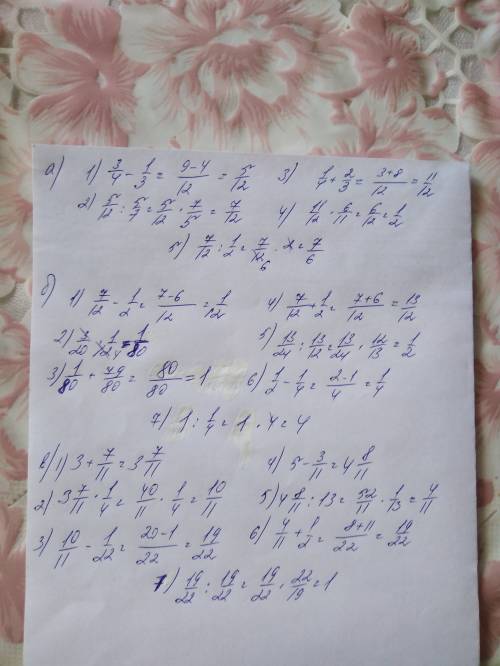 а) 1) 3/4 - 1/3 = 9-4/12 = 5/12 3) 1/4 + 2/3 = 3+8/12 = 11/12
2) 5/12 : 5/7 = 5/12 · 7/5 = 7/12 4) 11/12 · 6/11 = 6/12 = 1/2
5) 7/12 : 1/2 = 7/12 6 · 2 = 7/6
б) 1) 7/12 - 1/2 = 7-6/12 = 1/12 4) 7/12 + 1/2 = 7+6/12 = 13/12
2) 3/20 · 1/12 4 = 1/80 5) 13/24 : 13/12 = 13/24 · 12/13 = 1/2
3) 1/80 + 79/80 = 80/80 = 1 6) 1/2 - 1/4 = 2-1/4 = 1/4
7) 1 : 1/4 = 1 · 4 = 4
в) 1) 3 + 7/11 = 3 7/11 4) 5 - 3/11 = 4 8/11
2) 3 7/11 · 1/4 = 40/11 · 1/4 = 10/11 5) 4 8/11 : 13 = 52/11 · 1/13 = 4/11
3) 10/11 - 1/22 = 20-1/22 = 19/22 6) 4/11 + 1/2 = 8+11/22 = 19/22
7) 19/22 : 19/22 = 19/22 · 22/19 = 1